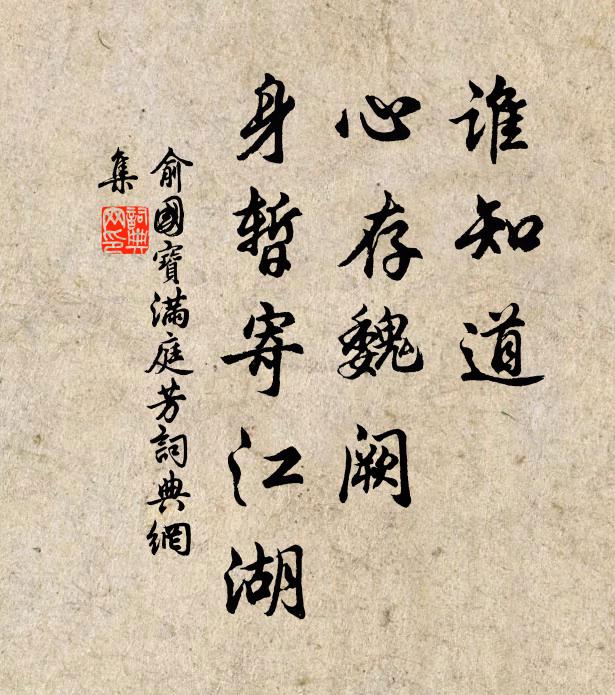 谁知道
心存魏阙
身暂寄江湖
俞國寶滿庭芳詞典網
集
詞典
网印